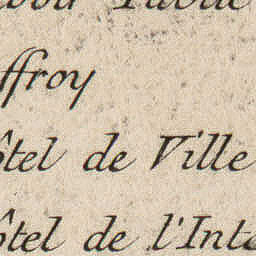 ffroy
ôtel de Ville
ôtel de l'Inte